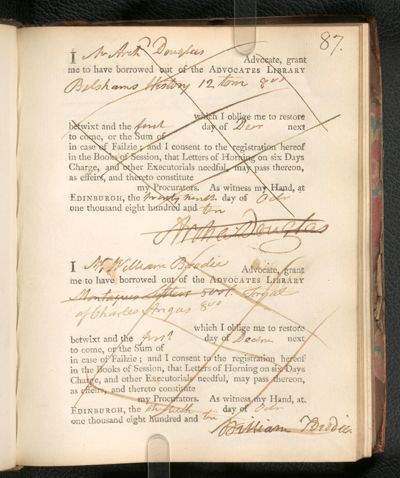 87.
I Mr Archd Douglas Advocate, grant
me to have borrowed out of the ADVOCATES LIBRARY
Belshams History 12 tom 8vo
which I oblige me to restore
betwixt and the first day of Decr next
to come, or the Sum of
in case of Failzie; and I consent to the registration hereof
in the Books of Session, that Letters of Horning on six Days
Charge, and other Executorials needful, may pass thereon,
as effeirs, and thereto constitute
my Procurators. As witness my Hand, at
EDINBURGH, the twenty ninth day of Octr
one thousand eight hundred and ten
Archd Douglas
I Mr William Boodie Advocate, grant
me to have borrowed out of the ADVOCATES LIBRARY
Montagues 8vo
of Charles Angus 8vo
which I oblige me to restore
betwixt and the first day of Decem next
to come, or the Sum of
in case of Failzie; and I consent to the registration hereof
in the Books of Session, that Letters of Horning on six Days
Charge, and other Executorials needful, may pass thereon,
as effeirs, and thereto constitute
my Procurators. As witness my Hand, at
EDINBURGH, the day of Octr
one thousand eight hundred and ten
William Boodie.